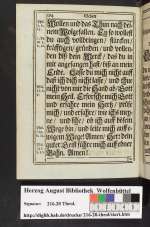 Wollen und das Thun nach dei-
nem Wolgefallen. Du so wollest
du auch vollbringen / stärcken /
kräfftigen / gründen / und vollen-
den diß dein Werck / das du in
mir angefangen hast / biß an mein
Ende. Lasse du mich nicht auff
daß ich dich nicht lasse / und thue
nicht von mir die Hand ab Gott
mein Heil. Erforsche mich Gott
und erfahre mein Hertz / prüfe
mich / und erfahre / wie ichs mey-
ne / und siehe / ob ich auff bösem
Wege bin / und leite mich auff e-
wigem Wege. Amen! HErr dein
guter Geist führe mich auff ebner
Bahn. Amen!
Herzog August Bibliothek Wolfenbüttel
Signatur: 216-28 Theol.
http://diglib.hab.de/drucke/216-28-theol/start.htm